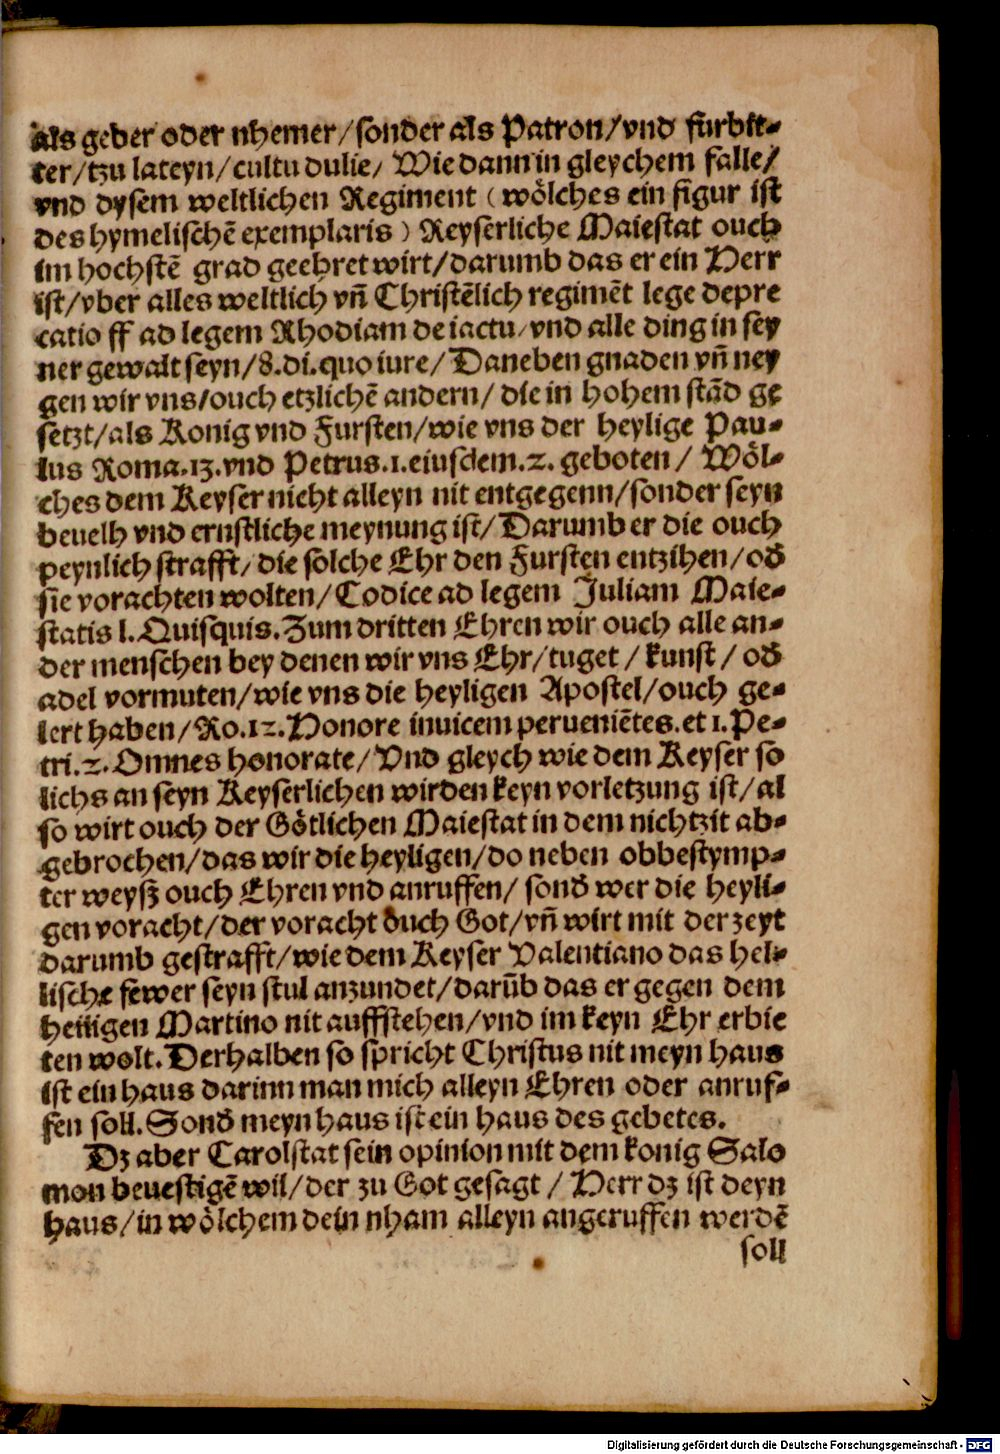 als geber oder nhemer/sonder als Patron/vnd furbit-
ter/tzu lateyn/cultu dulie/ Wie dann in gleychem falle/
vnd dysem weltlichen Regiment (wölches ein figur ist
des hymelischē exemplaris) Keyserliche Maiestat ouch
im hochstē grad geehret wirt/darumb das er ein Herr
ist/vber alles weltlich vn̄ Christēlich regimēt lege depre
catio ff ad legem Rhodiam de iactu/vnd alle ding in sey
ner gewalt seyn/8.di.quo iure/Daneben gnaden vn̄ ney
gen wir vns/ouch etzlichē andern/ die in hohem stād ge
setzt/als Konig vnd Fursten/wie vns der heylige Pau-
lus Roma.13.vnd Petrus.1.eiusdem.2. geboten/ Wöl-
ches dem Keyser nicht alleyn nit entgegenn/sonder seyn
beuelh vnd ernstliche meynung ist/Darumb er die ouch
peynlich strafft/die solche Ehr den Fursten entzihen/od̄
sie vorachten wolten/Codice ad legem Juliam Maie-
statis l.Quisquis.Zum dritten Ehren wir ouch alle an-
der menschen bey denen wir vns Ehr/tuget/kunst/od̄
adel vormuten/wie vns die heyligen Apostel/ouch ge-
lert haben/Ro.12.Honore inuicem perueniētes.et 1.Pe-
tri.2.Omnes honorate/Vnd gleych wie dem Keyser so
lichs an seyn Keyserlichen wirden keyn vorletzung ist/al
so wirt ouch der Götlichen Maiestat in dem nichtzit ab-
gebrochen/das wir die heyligen/do neben obbestymp-
ter weysz ouch Ehren vnd anruffen/ sond̄ wer die heyli-
gen voracht/der voracht ouch Got/vn̄ wirt mit der zeyt
darumb gestrafft/wie dem Keyser Valentiano das hel-
lische fewer seyn stul anzundet/darūb das er gegen dem
heiligen Martino nit auffstehen/vnd im keyn Ehr erbie
ten wolt.Derhalben so spricht Christus nit meyn haus
ist ein haus darinn man mich alleyn Ehren oder anruf-
fen soll.Sond̄ meyn haus ist ein haus des gebetes.
Dz aber Carolstat sein opinion mit dem konig Salo
mon beuestigē wil/der zu Got gesagt/ Herr dz ist deyn
haus/in wölchem dein nham alleyn angeruffen werdē
soll
Digitalisierung gefördert durch die Deutsche Forschungsgemeinschaft - DFG